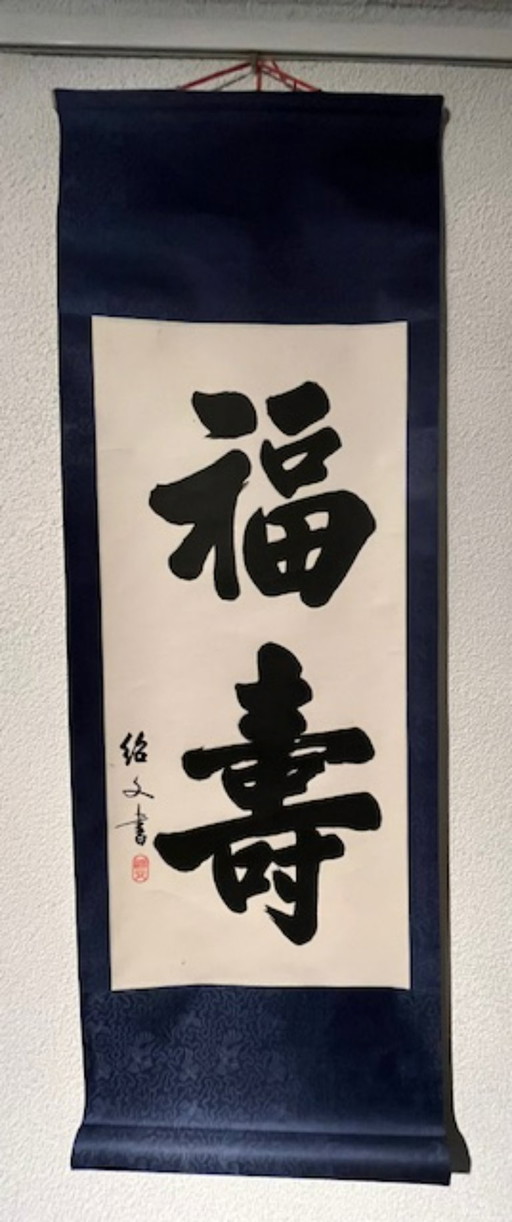 福壽
紹文書